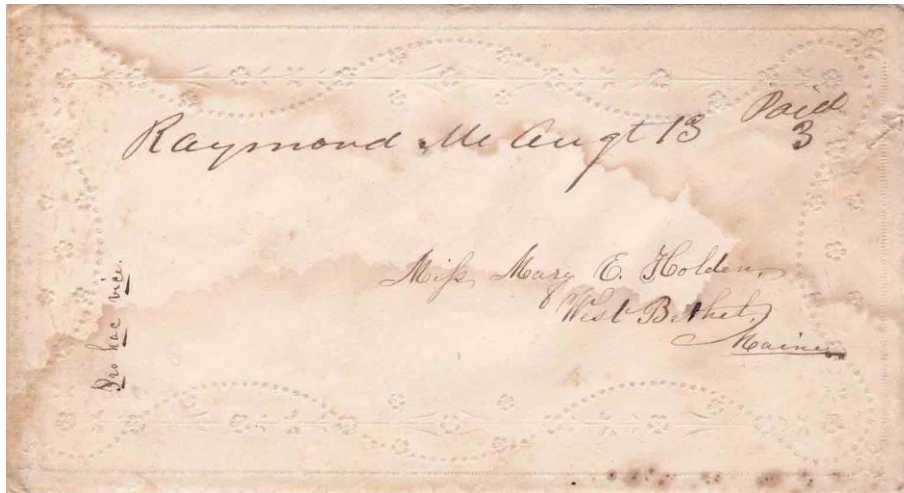 Raymond Me Augt 13
Paid
3
Miſs, Mary E. Holden,
West Bethel,
Maine.
Pro hac vice.